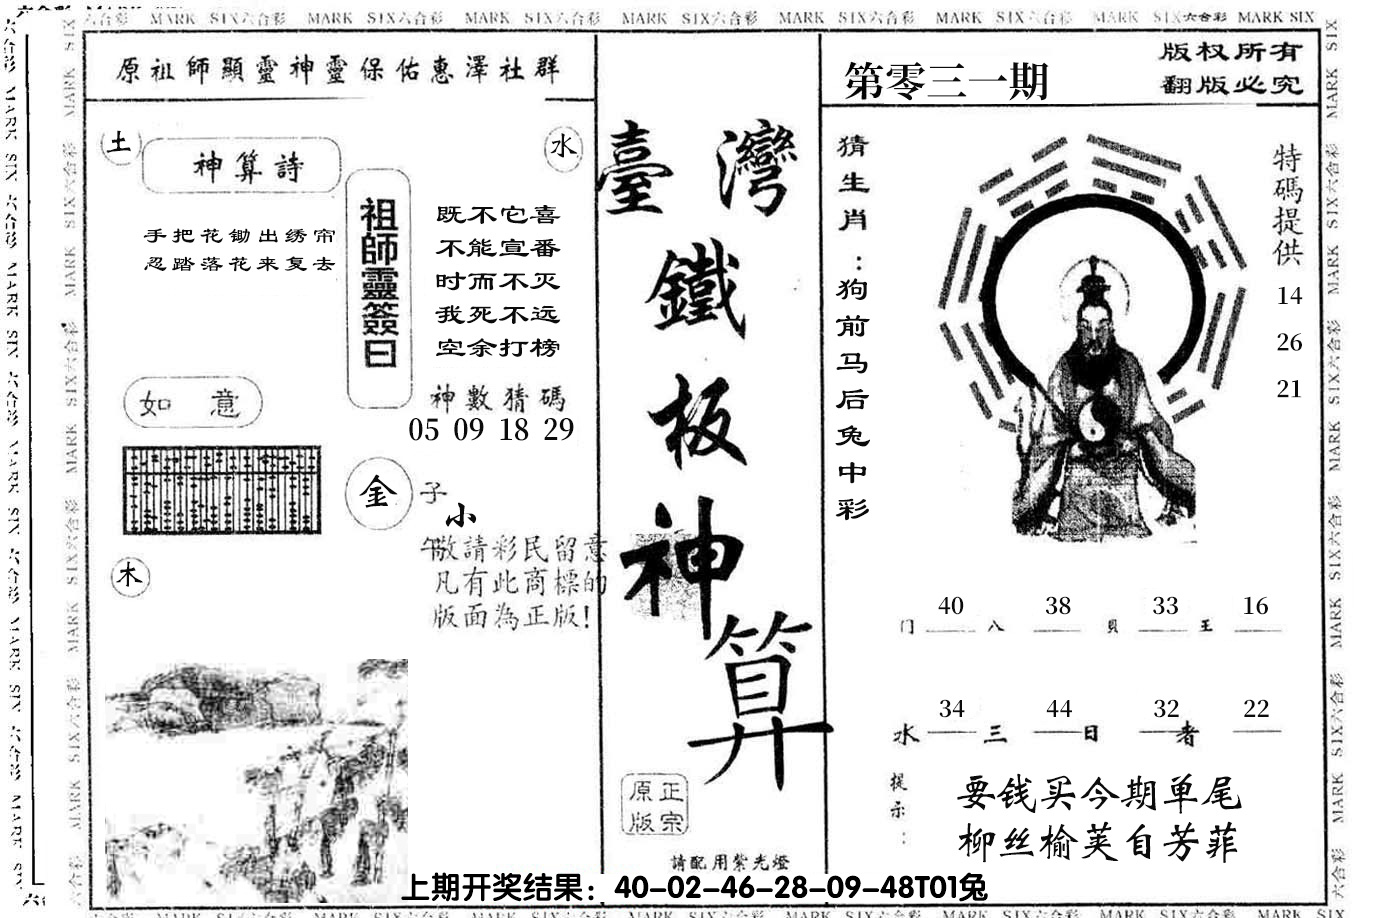 MARK SIX六合彩 MARK SIX六合彩 MARK SIX六合彩 MARK SIX六合彩 MARK SIX六合彩 MARK SIX六合彩 MARK SIX六合彩 MARK SIX
原祖師顯靈神靈保佑惠澤社群
土
神算詩
水
手把花锄出绣帘
忍踏落花来复去
祖師靈簽曰
既不它喜
不能宣番
时而不灭
我死不远
空余打榜
如意
神數猜碼
05 09 18 29
金
子
小
午敬請彩民留意
凡有此商標的
版面為正版!
木
臺灣
鐵
板
神
算
原正
版宗
請配用紫光燈
第零三一期
版权所有
翻版必究
猜生肖:狗前马后兔中彩
特碼提供
14
26
21
40 38 33 16
门 八 貝 王
34 44 32 22
水 三 日 者
提示:
要钱买今期单尾
柳丝榆荚自芳菲
上期开奖结果：40-02-46-28-09-48T01兔